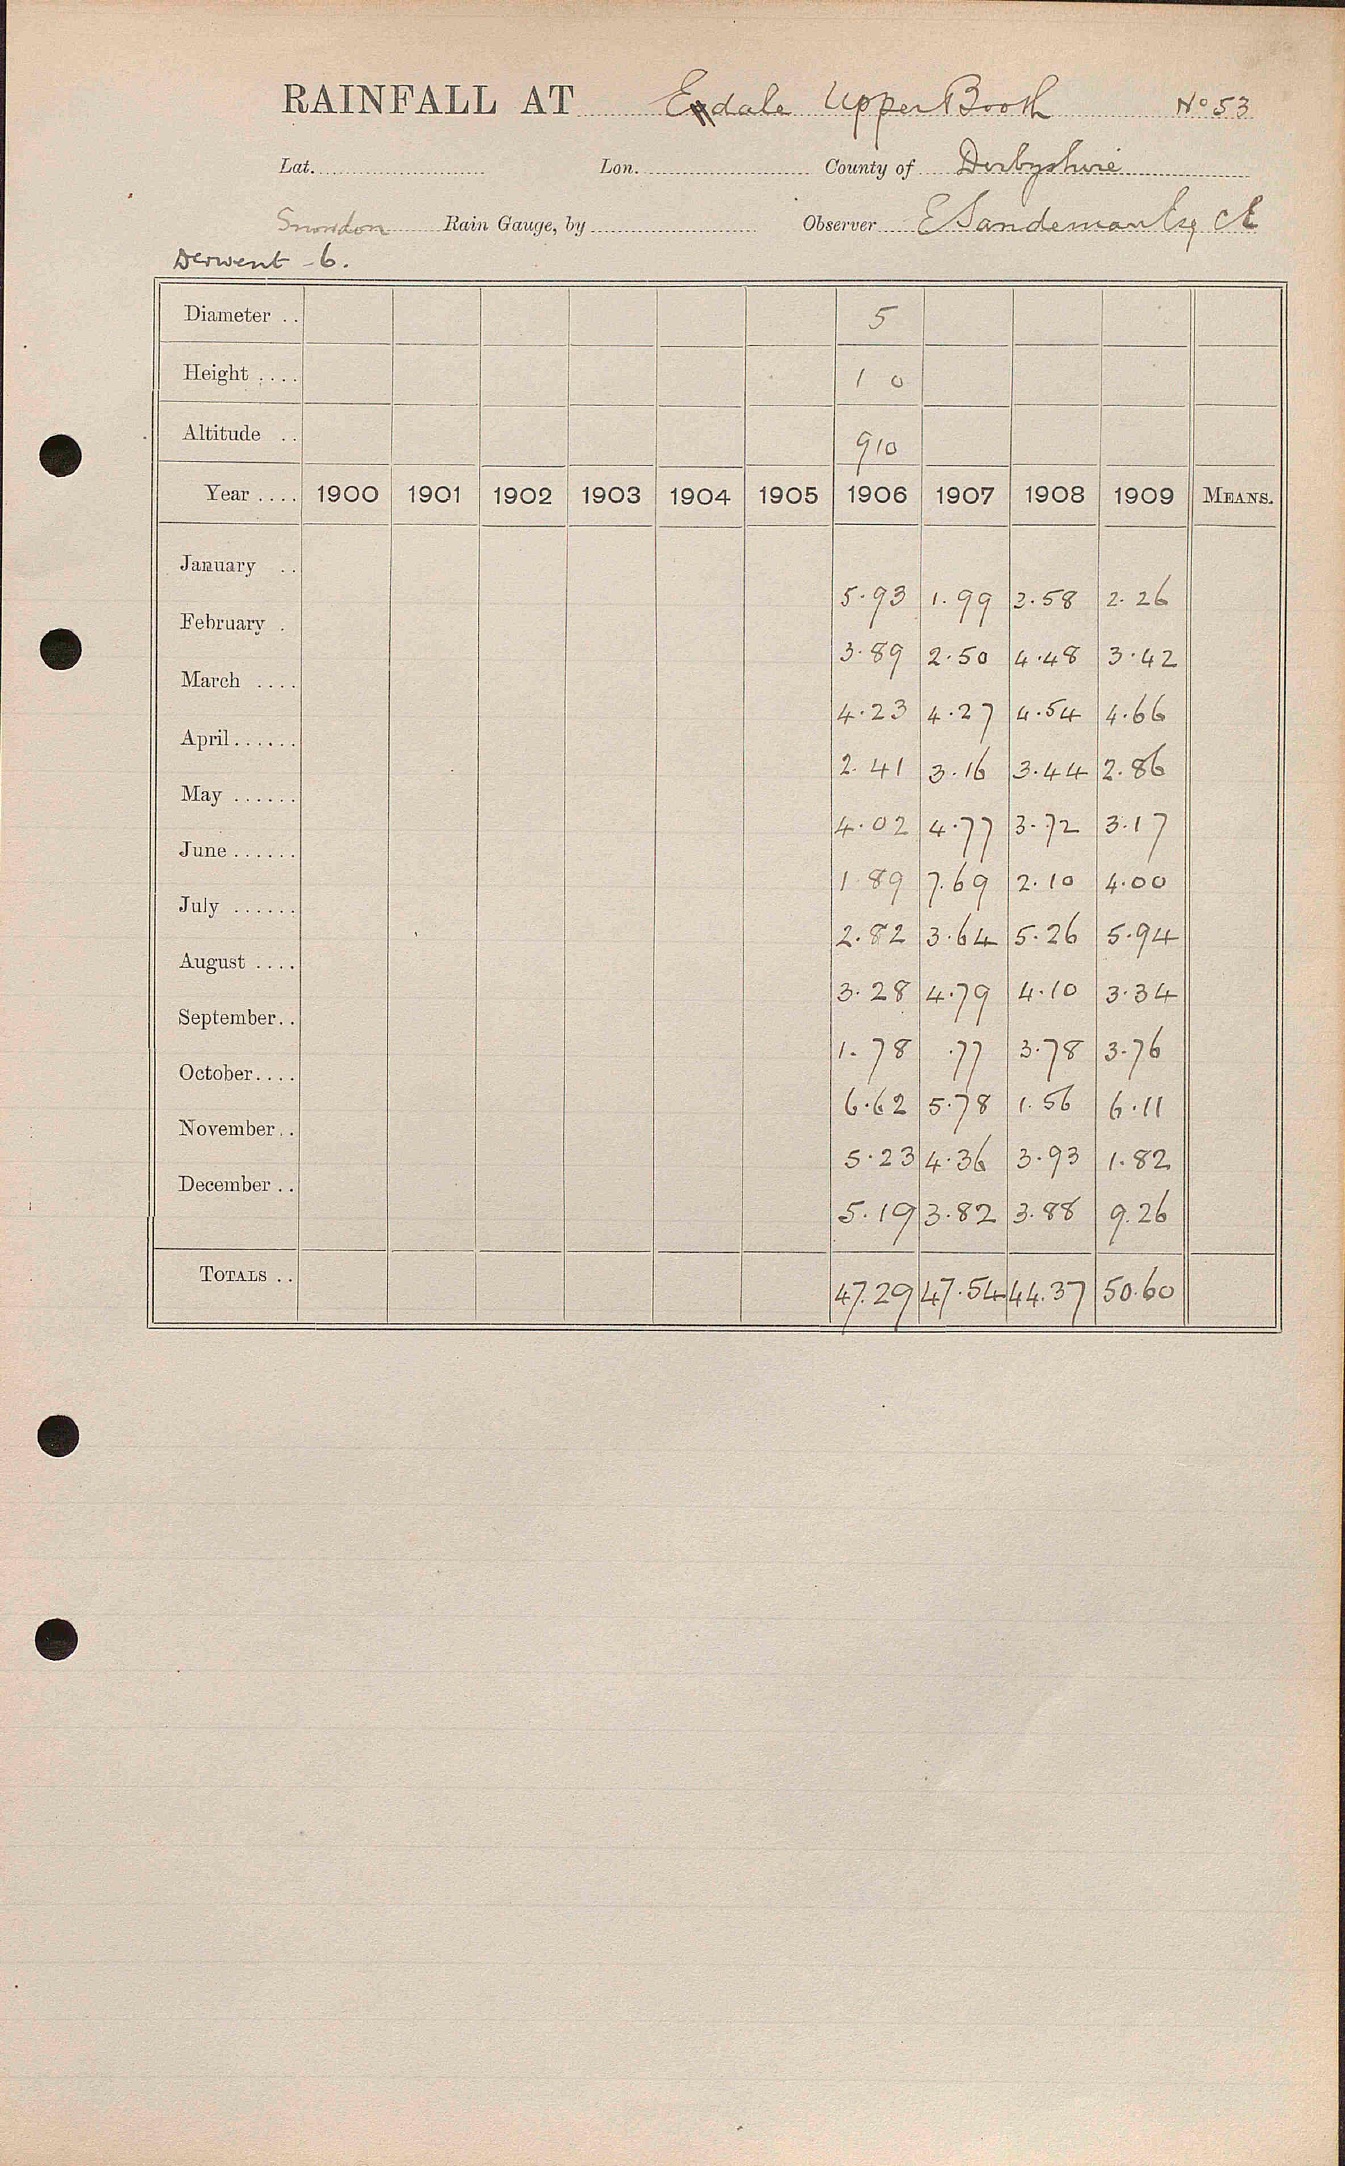 RAINFALL AT Edale Upper Booth No 53
Lat. Lon. County of Derbyshire
Snowdon Rain Gauge, by Observer E Sandeman Esq CE
Derwent - 6.
Diameter .. 5
Height .... 1 0
Altitude .. 910
Year .... 1900 1901 1902 1903 1904 1905 1906 1907 1908 1909 MEANS.
January .. 5.93 1.99 3.58 2.26
February . 3.89 2.50 4.48 3.42
March .... 4.23 4.27 4.54 4.66
April...... 2.41 3.16 3.44 2.86
May ...... 4.02 4.77 3.72 3.17
June ...... 1.89 7.69 2.10 4.00
July ...... 2.82 3.64 5.26 5.94
August .... 3.28 4.79 4.10 3.34
September.. 1.78 .77 3.78 3.76
October.... 6.62 5.78 1.56 6.11
November.. 5.23 4.36 3.93 1.82
December .. 5.19 3.82 3.88 9.26
TOTALS .. 47.29 47.54 44.37 50.60